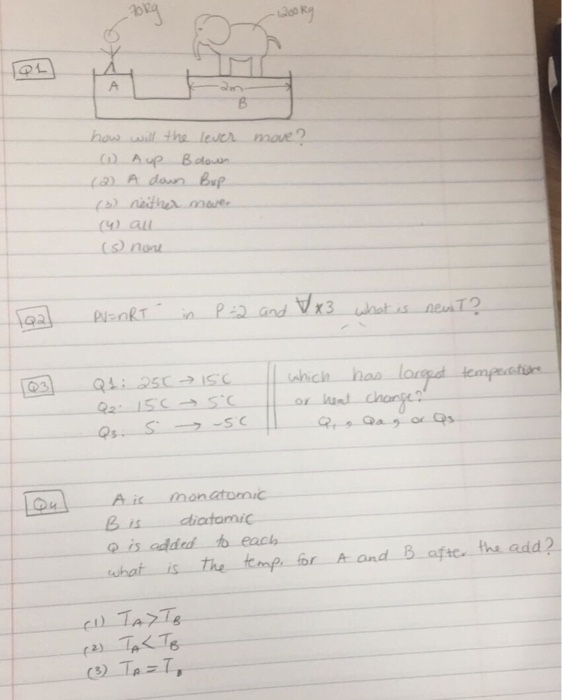 70kg
1200kg
Q1
A
2m
B
how will the lever move?
(1) A up B down
(2) A down Bup
(3) neither moves
(4) all
(5) none
Q2 PV=nRT in P÷2 and V×3 what is new T?
Q3
Q1: 25C → 15C
Q2: 15C → 5°C
Q3: 5 → -5C
which has largest temperature
or heat change?
Q1, Q2, or Q3
Q4
A is monatomic
B is diatomic
Q is added to each
what is the temp. for A and B after the add?
(1) TA>TB
(2) TA<TB
(3) TA=TB